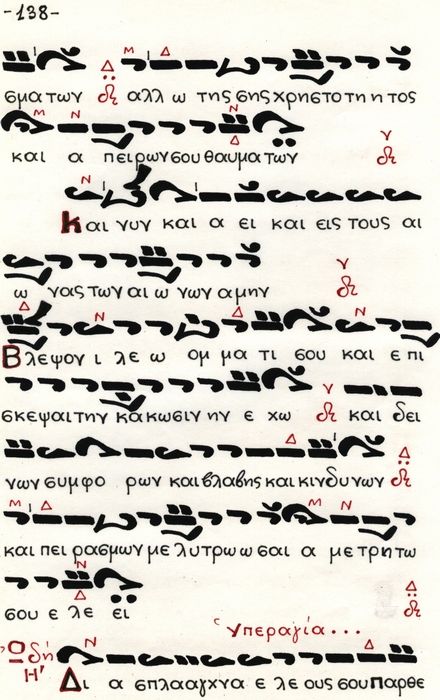 -138-
σμα των αλλ ω της σης χρηστο τη η τος
και α πειρων σου θαυμα των
Και νυν και α ει και εις τους αι
ω νας των αι ω νων α μην
Βλεψον ι λε ω ομ μα τι σου και ε πι
σκεψαι την κα κωσιν ην ε χω και δει
νων συμφο ρων και βλαβης και κινδυνων
και πει ρασμων με λυτρω ω σαι α με τρη τω
σου ε λε ει
Ὠδή Η' Ὑπεραγία...
Δι α σπλααγχνα ε λε ους σου Παρθε